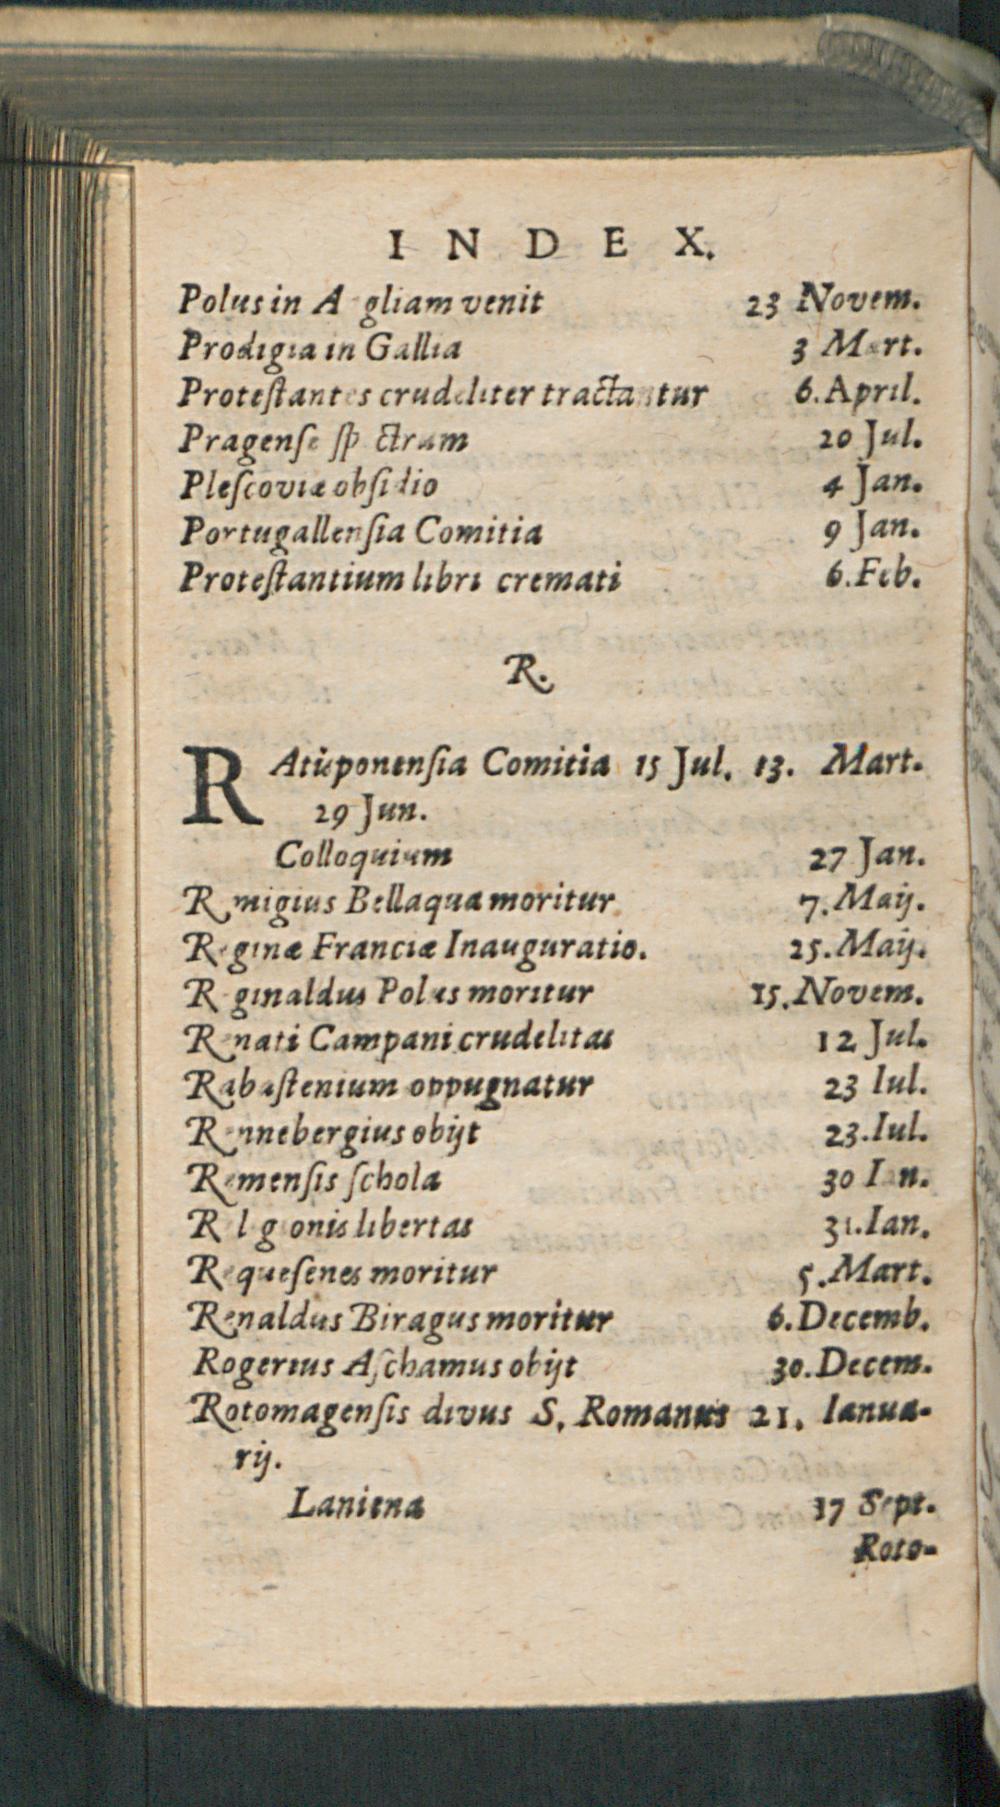 INDEX.
Polus in Angliam venit 23 Novem.
Prodigia in Gallia 3 Mart.
Proteſtantes crudeliter tractantur 6. April.
Pragenſe ſpectrum 20 Jul.
Pleſcoviæ obſidio 4 Jan.
Portugallenſia Comitia 9 Jan.
Proteſtantium libri cremati 6. Feb.
R.
RAtisponenſia Comitia 15 Jul. 13. Mart.
29 Jun.
Colloquium 27 Jan.
Remigius Bellaqua moritur 7. Maij.
Reginæ Franciæ Inauguratio. 25. Maij.
Reginaldus Polus moritur 15. Novem.
Renati Campani crudelitas 12 Jul.
Rabaſtenium oppugnatur 23 Iul.
Rennebergius obijt 23. Iul.
Remenſis ſchola 30 Ian.
Religionis libertas 31. Ian.
Requeſenes moritur 5. Mart.
Renaldus Biragus moritur 6. Decemb.
Rogerius Aſchamus obijt 30. Decem.
Rotomagenſis divus S. Romanus 21. Ianua-
rij.
Laniena 17 Sept.
Roto-